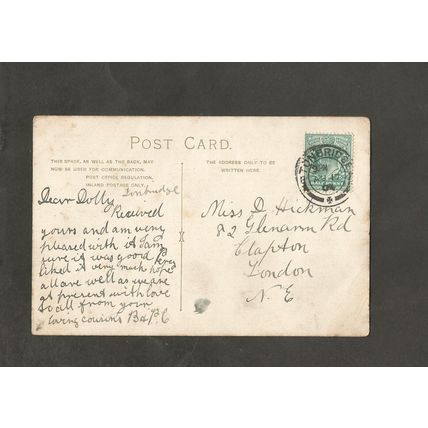 POST CARD.
THIS SPACE, AS WELL AS THE BACK, MAY
NOW BE USED FOR COMMUNICATION.
POST OFFICE REGULATION.
INLAND POSTAGE ONLY.
THE ADDRESS ONLY TO BE
WRITTEN HERE.
Tonbridge
Dear Dolly
Received
yours and am very
pleased with it I am
sure it was good Percy
liked it very much hope
all are well as we are
at present with love
to all from your
loving cousins B & P C
Miss D. Hickman
82 Glenarm Rd
Clapton
London
N.E
TONBRIDGE
HALFPENNY